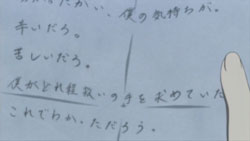 かい、僕の気持ちが。
辛いだろ。
苦しいだろ。
僕がどれ程救いの手を求めていた
これでわかっただろう。